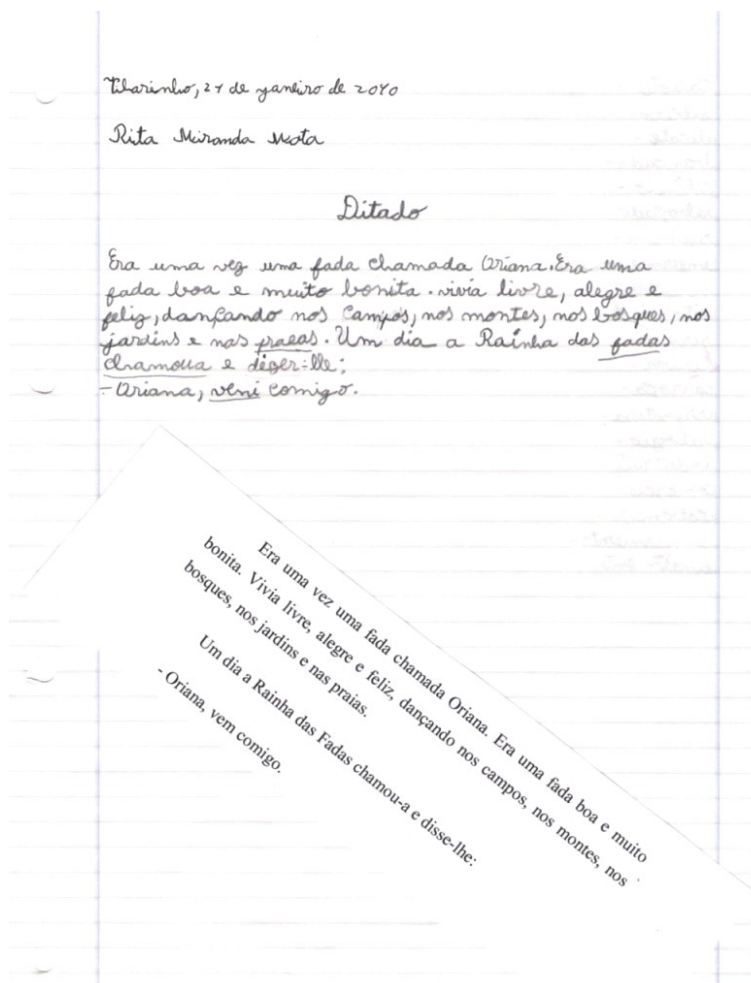 Vilarinho, 27 de janeiro de 2010
Rita Miranda Mota
Ditado
Era uma vez uma fada chamada Oriana. Era uma
fada boa e muito bonita. vivia livre, alegre e
feliz, dançando nos campos, nos montes, nos bosques, nos
jardins e nas praeas. Um dia a Rainha das fadas
chamoua e diger-lle:
- Oriana, veni comigo.
Era uma vez uma fada chamada Oriana. Era uma fada boa e muito
bonita. Vivia livre, alegre e feliz, dançando nos campos, nos montes, nos
bosques, nos jardins e nas praias.
Um dia a Rainha das Fadas chamou-a e disse-lhe:
- Oriana, vem comigo.